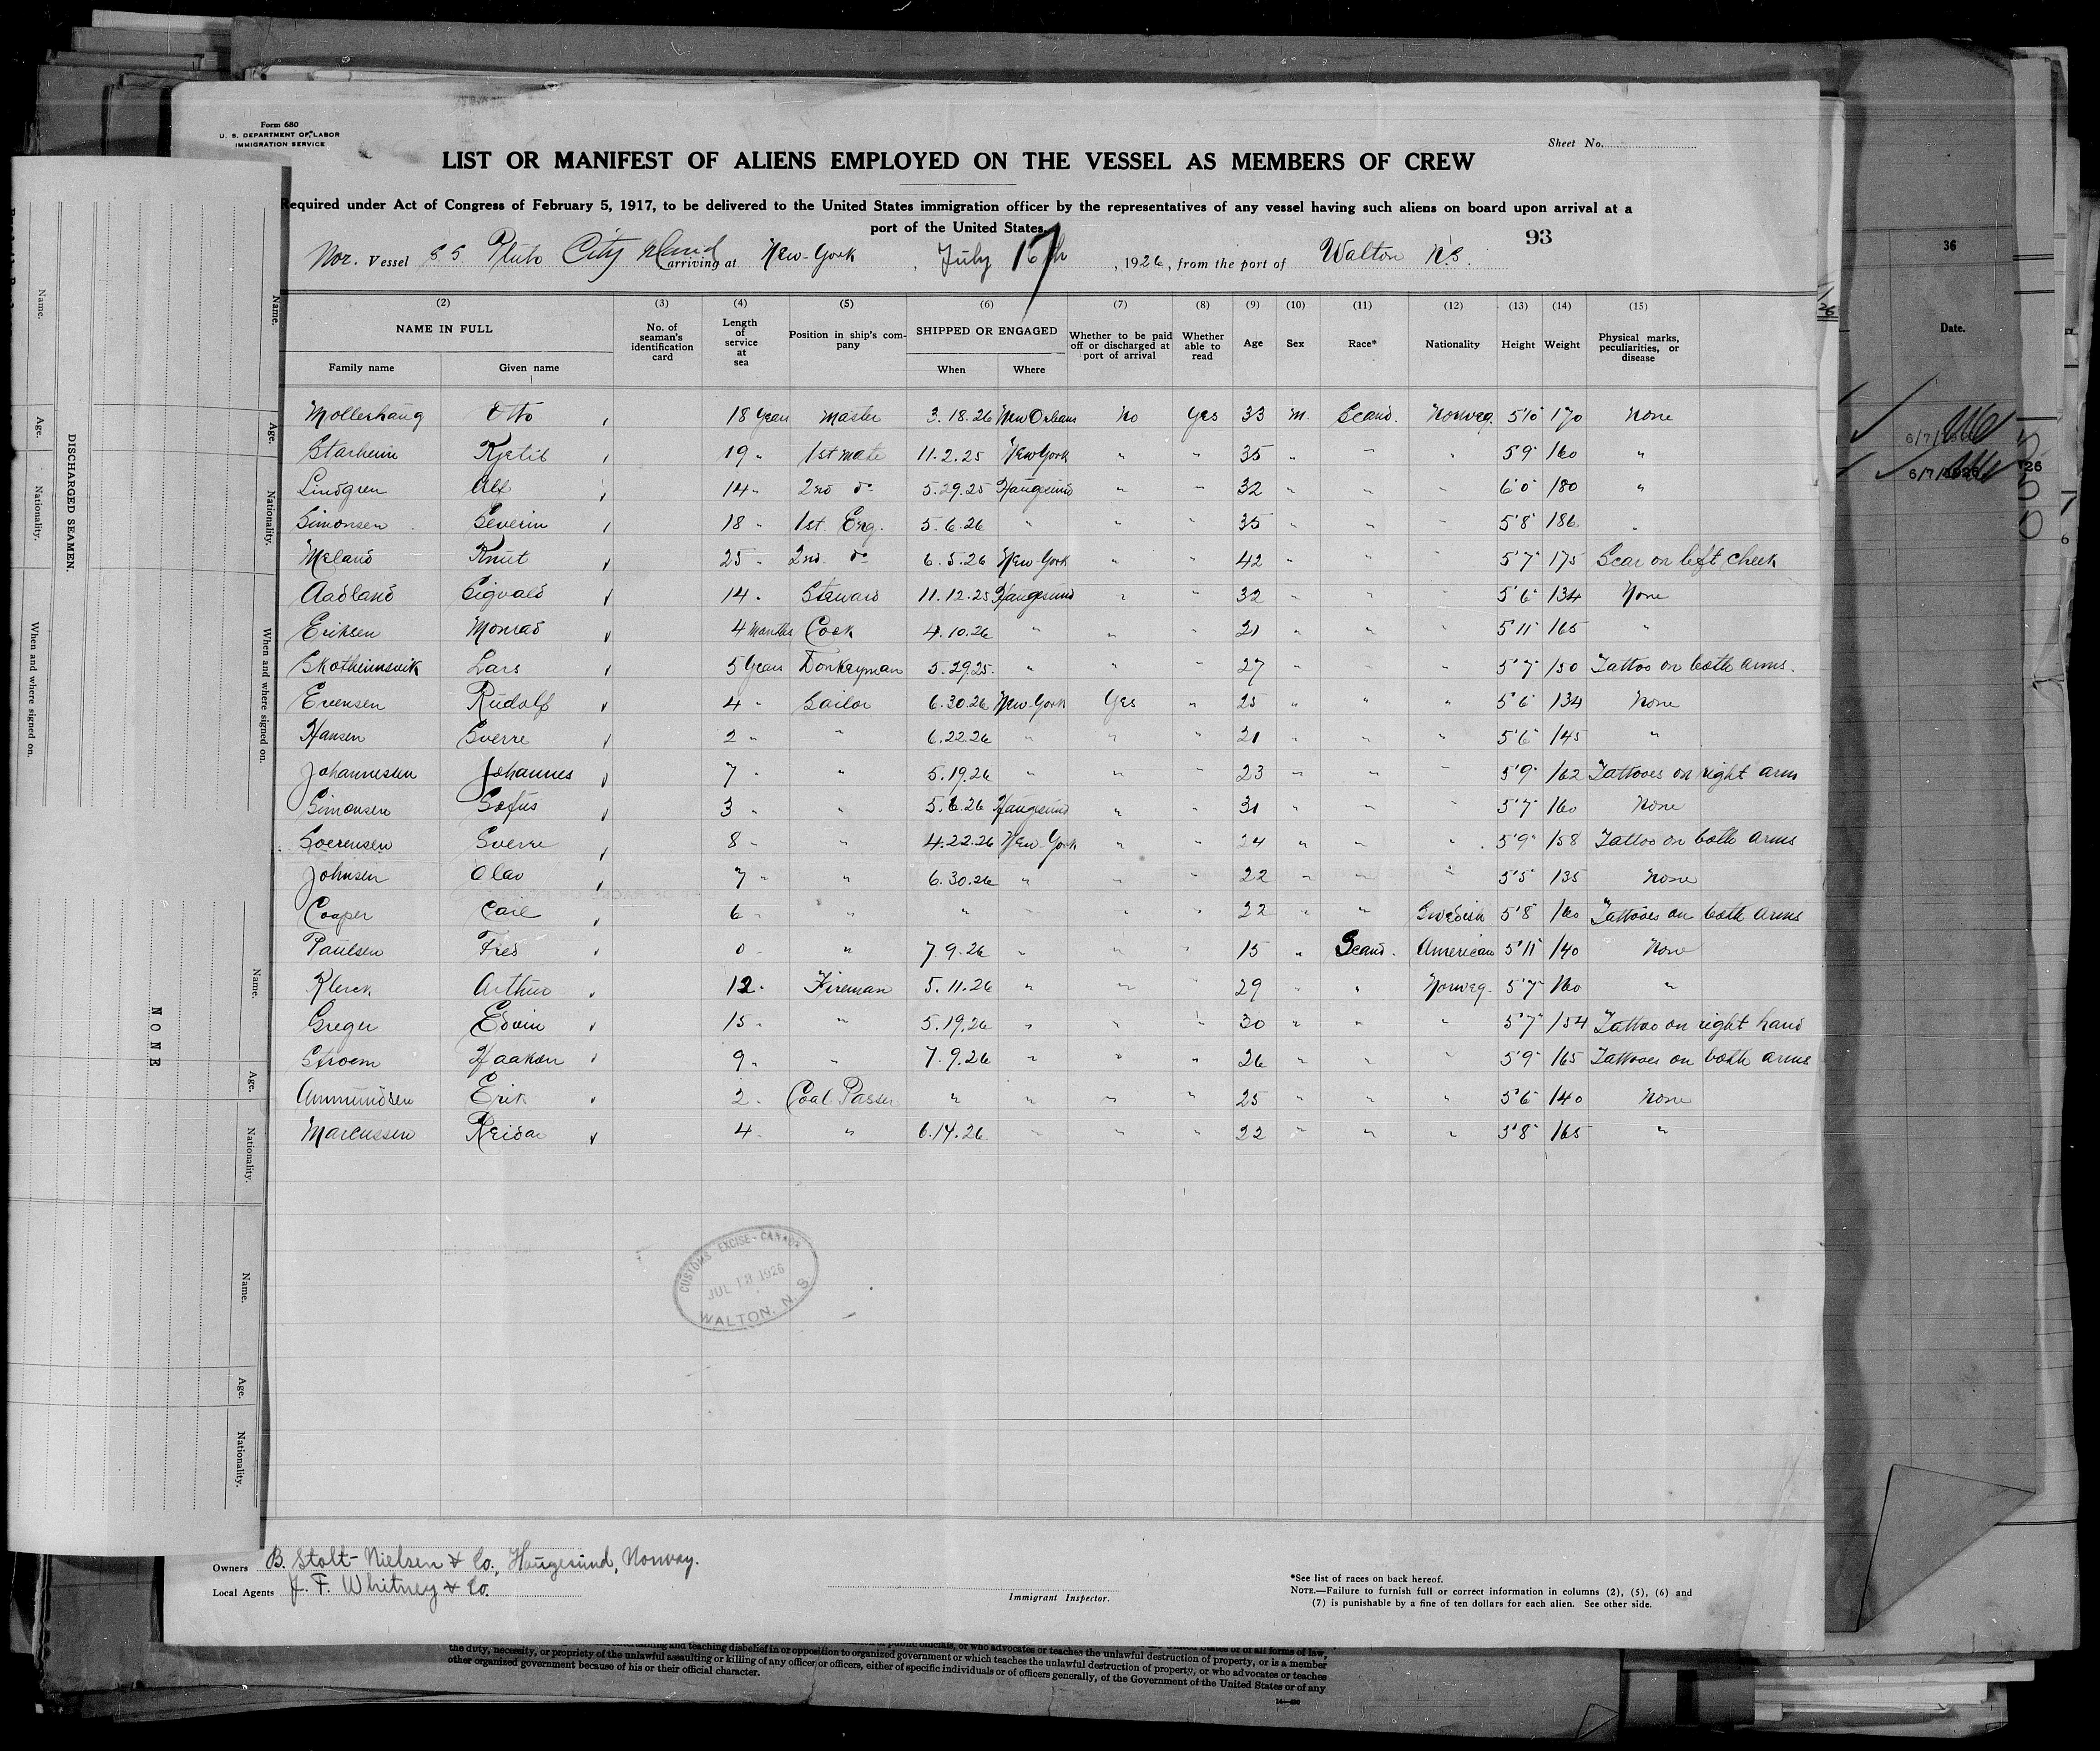 Form 680
U. S. DEPARTMENT OF LABOR
IMMIGRATION SERVICE
Sheet No.
LIST OR MANIFEST OF ALIENS EMPLOYED ON THE VESSEL AS MEMBERS OF CREW
Required under Act of Congress of February 5, 1917, to be delivered to the United States immigration officer by the representatives of any vessel having such aliens on board upon arrival at a
port of the United States.
93
Nor. Vessel S.S. Pluto City Island arriving at New-York, July 17th, 1926, from the port of Walton N.S.
(2) (3) (4) (5) (6) (7) (8) (9) (10) (11) (12) (13) (14) (15)
NAME IN FULL No. of seaman's identification card Length of service at sea Position in ship's company SHIPPED OR ENGAGED Whether to be paid off or discharged at port of arrival Whether able to read Age Sex Race* Nationality Height Weight Physical marks, peculiarities, or disease
Family name Given name When Where
Mollerhaug Otto 18 Years Master 3.18.26 New Orleans No Yes 33 M. Scand. Norweg. 5'10" 170 None
Starheim Kjetil 19 " 1st mate 11.2.25 New York " " 35 " " " 5'9" 160 "
Lindgren Alf 14 " 2nd do 5.29.25 Haugesund " " 32 " " " 6'0" 180 "
Simonsen Severin 18 " 1st. Eng. 5.6.26 " " " 35 " " " 5'8" 186 "
Meland Knut 25 " 2nd. do 6.5.26 New-York " " 42 " " " 5'7" 175 Scar on left cheek
Aadland Sigvald 14 " Steward 11.12.25 Haugesund " " 32 " " " 5'6" 134 None
Eriksen Monrad 4 months Cook 4.10.26 " " " 21 " " " 5'11" 165 "
Skotheimsvik Lars 5 Years Donkeyman 5.29.25. " " " 27 " " " 5'7" 150 Tattoo on both arms.
Evensen Rudolf 4 " Sailor 6.30.26 New-York Yes " 25 " " " 5'6" 134 None
Hansen Sverre 2 " " 6.22.26 " " " 21 " " " 5'6" 145 "
Johannessen Johannes 7 " " 5.19.26 " " " 23 " " " 5'9" 162 Tattooes on right arm
Simonsen Sofus 3 " " 5.6.26 Haugesund " " 31 " " " 5'7" 160 None
Soerensen Sverre 8 " " 4.22.26 New-York " " 24 " " " 5'9" 158 Tattoo on both arms
Johnsen Olav 7 " " 6.30.26 " " " 22 " " " 5'5" 135 None
Cooper Carl 6 " " " " " " 22 " " Swedish 5'8" 160 Tattooes on both arms
Paulsen Fred 0 " " 7.9.26 " " " 15 " Scand. American 5'11" 140 None
Klerck Arthur 12 " Fireman 5.11.26 " " " 29 " " Norweg. 5'7" 160 "
Greger Edvin 15 " " 5.19.26 " " " 30 " " " 5'7" 154 Tattoo on right hand
Stroem Haakon 9 " " 7.9.26 " " " 26 " " " 5'9" 165 Tattooes on both arms
Ammundsen Erik 2 " Coal Passer " " " " 25 " " " 5'6" 140 None
Marcussen Reidar 4 " " 6.14.26 " " " 22 " " " 5'8" 165 "
CUSTOMS EXCISE - CANADA
JUL 13 1926
WALTON, N. S.
Owners B. Stolt-Nielsen & Co., Haugesund, Norway.
Local Agents J. F. Whitney & Co.
Immigrant Inspector.
*See list of races on back hereof.
NOTE.—Failure to furnish full or correct information in columns (2), (5), (6) and
(7) is punishable by a fine of ten dollars for each alien. See other side.
the duty, necessity, or propriety of the unlawful assaulting or killing of any officer or officers, either of specific individuals or of officers generally, of the Government of the United States or of any
other organized government because of his or their official character.
DISCHARGED SEAMEN.
Name.
Age.
Nationality.
When and where signed on.
Name.
Age.
Nationality.
When and where signed on.
NONE
Name.
Age.
Nationality.
Name.
Age.
Nationality.
36
Date.